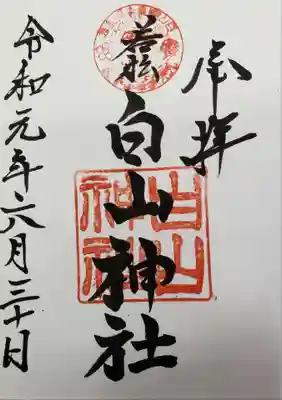 奉拝
若松
白山神社
白山
神社
令和元年六月三十日